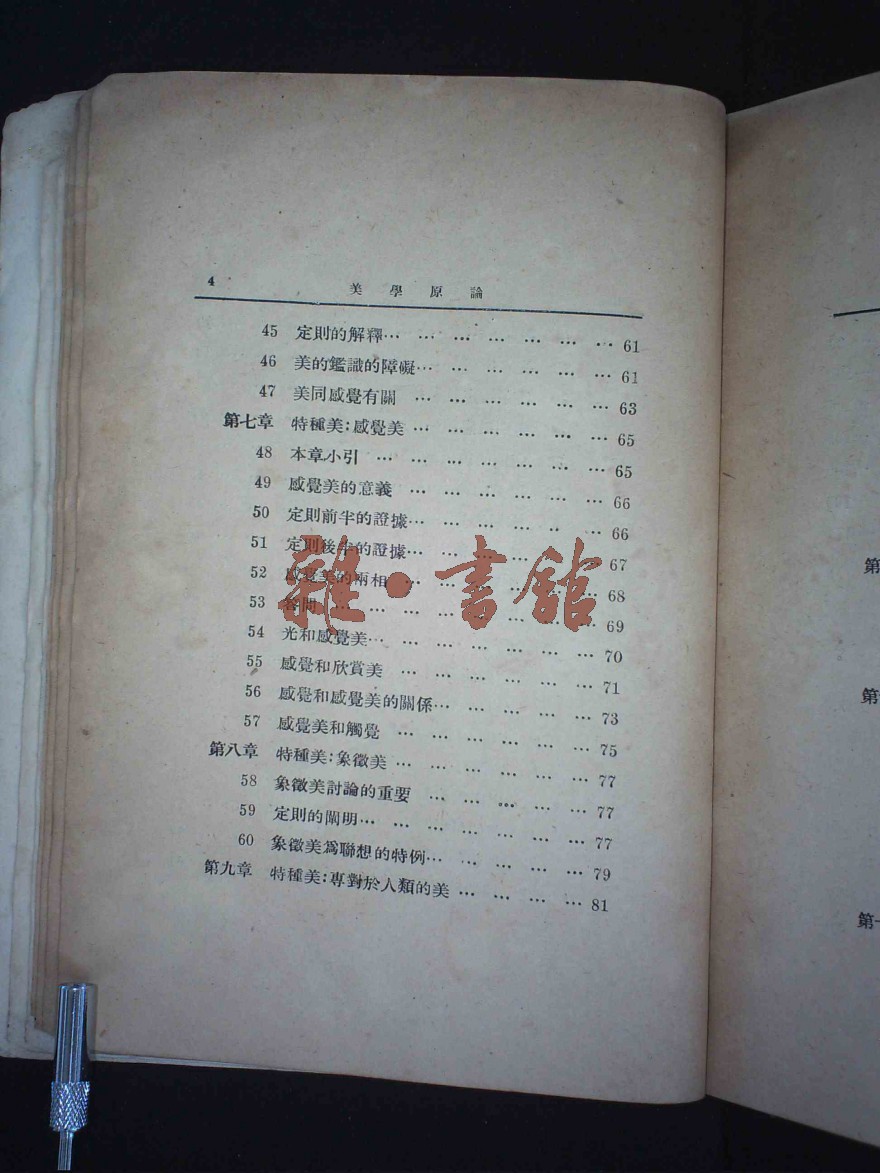 4 美學原論
45 定則的解釋… … … … … … … 61
46 美的鑑識的障礙… … … … … … 61
47 美同感覺有關 … … … … … … 63
第七章 特種美:感覺美 … … … … … … 65
48 本章小引 … … … … … … … 65
49 感覺美的意義 … … … … … … 66
50 定則前半的證據… … … … … … 66
51 定則後半的證據… … … … … … 67
52 感覺美的兩相 … … … … … … 68
53 … … … … … … … 69
54 光和感覺美… … … … … … … 70
55 感覺和欣賞美 … … … … … … 71
56 感覺和感覺美的關係… … … … … 73
57 感覺美和觸覺 … … … … … … 75
第八章 特種美:象徵美 … … … … … … 77
58 象徵美討論的重要 … … … … … 77
59 定則的闡明… … … … … … … 77
60 象徵美爲聯想的特例… … … … … 79
第九章 特種美:專對於人類的美 … … … … 81
雜·書館
第
第
第